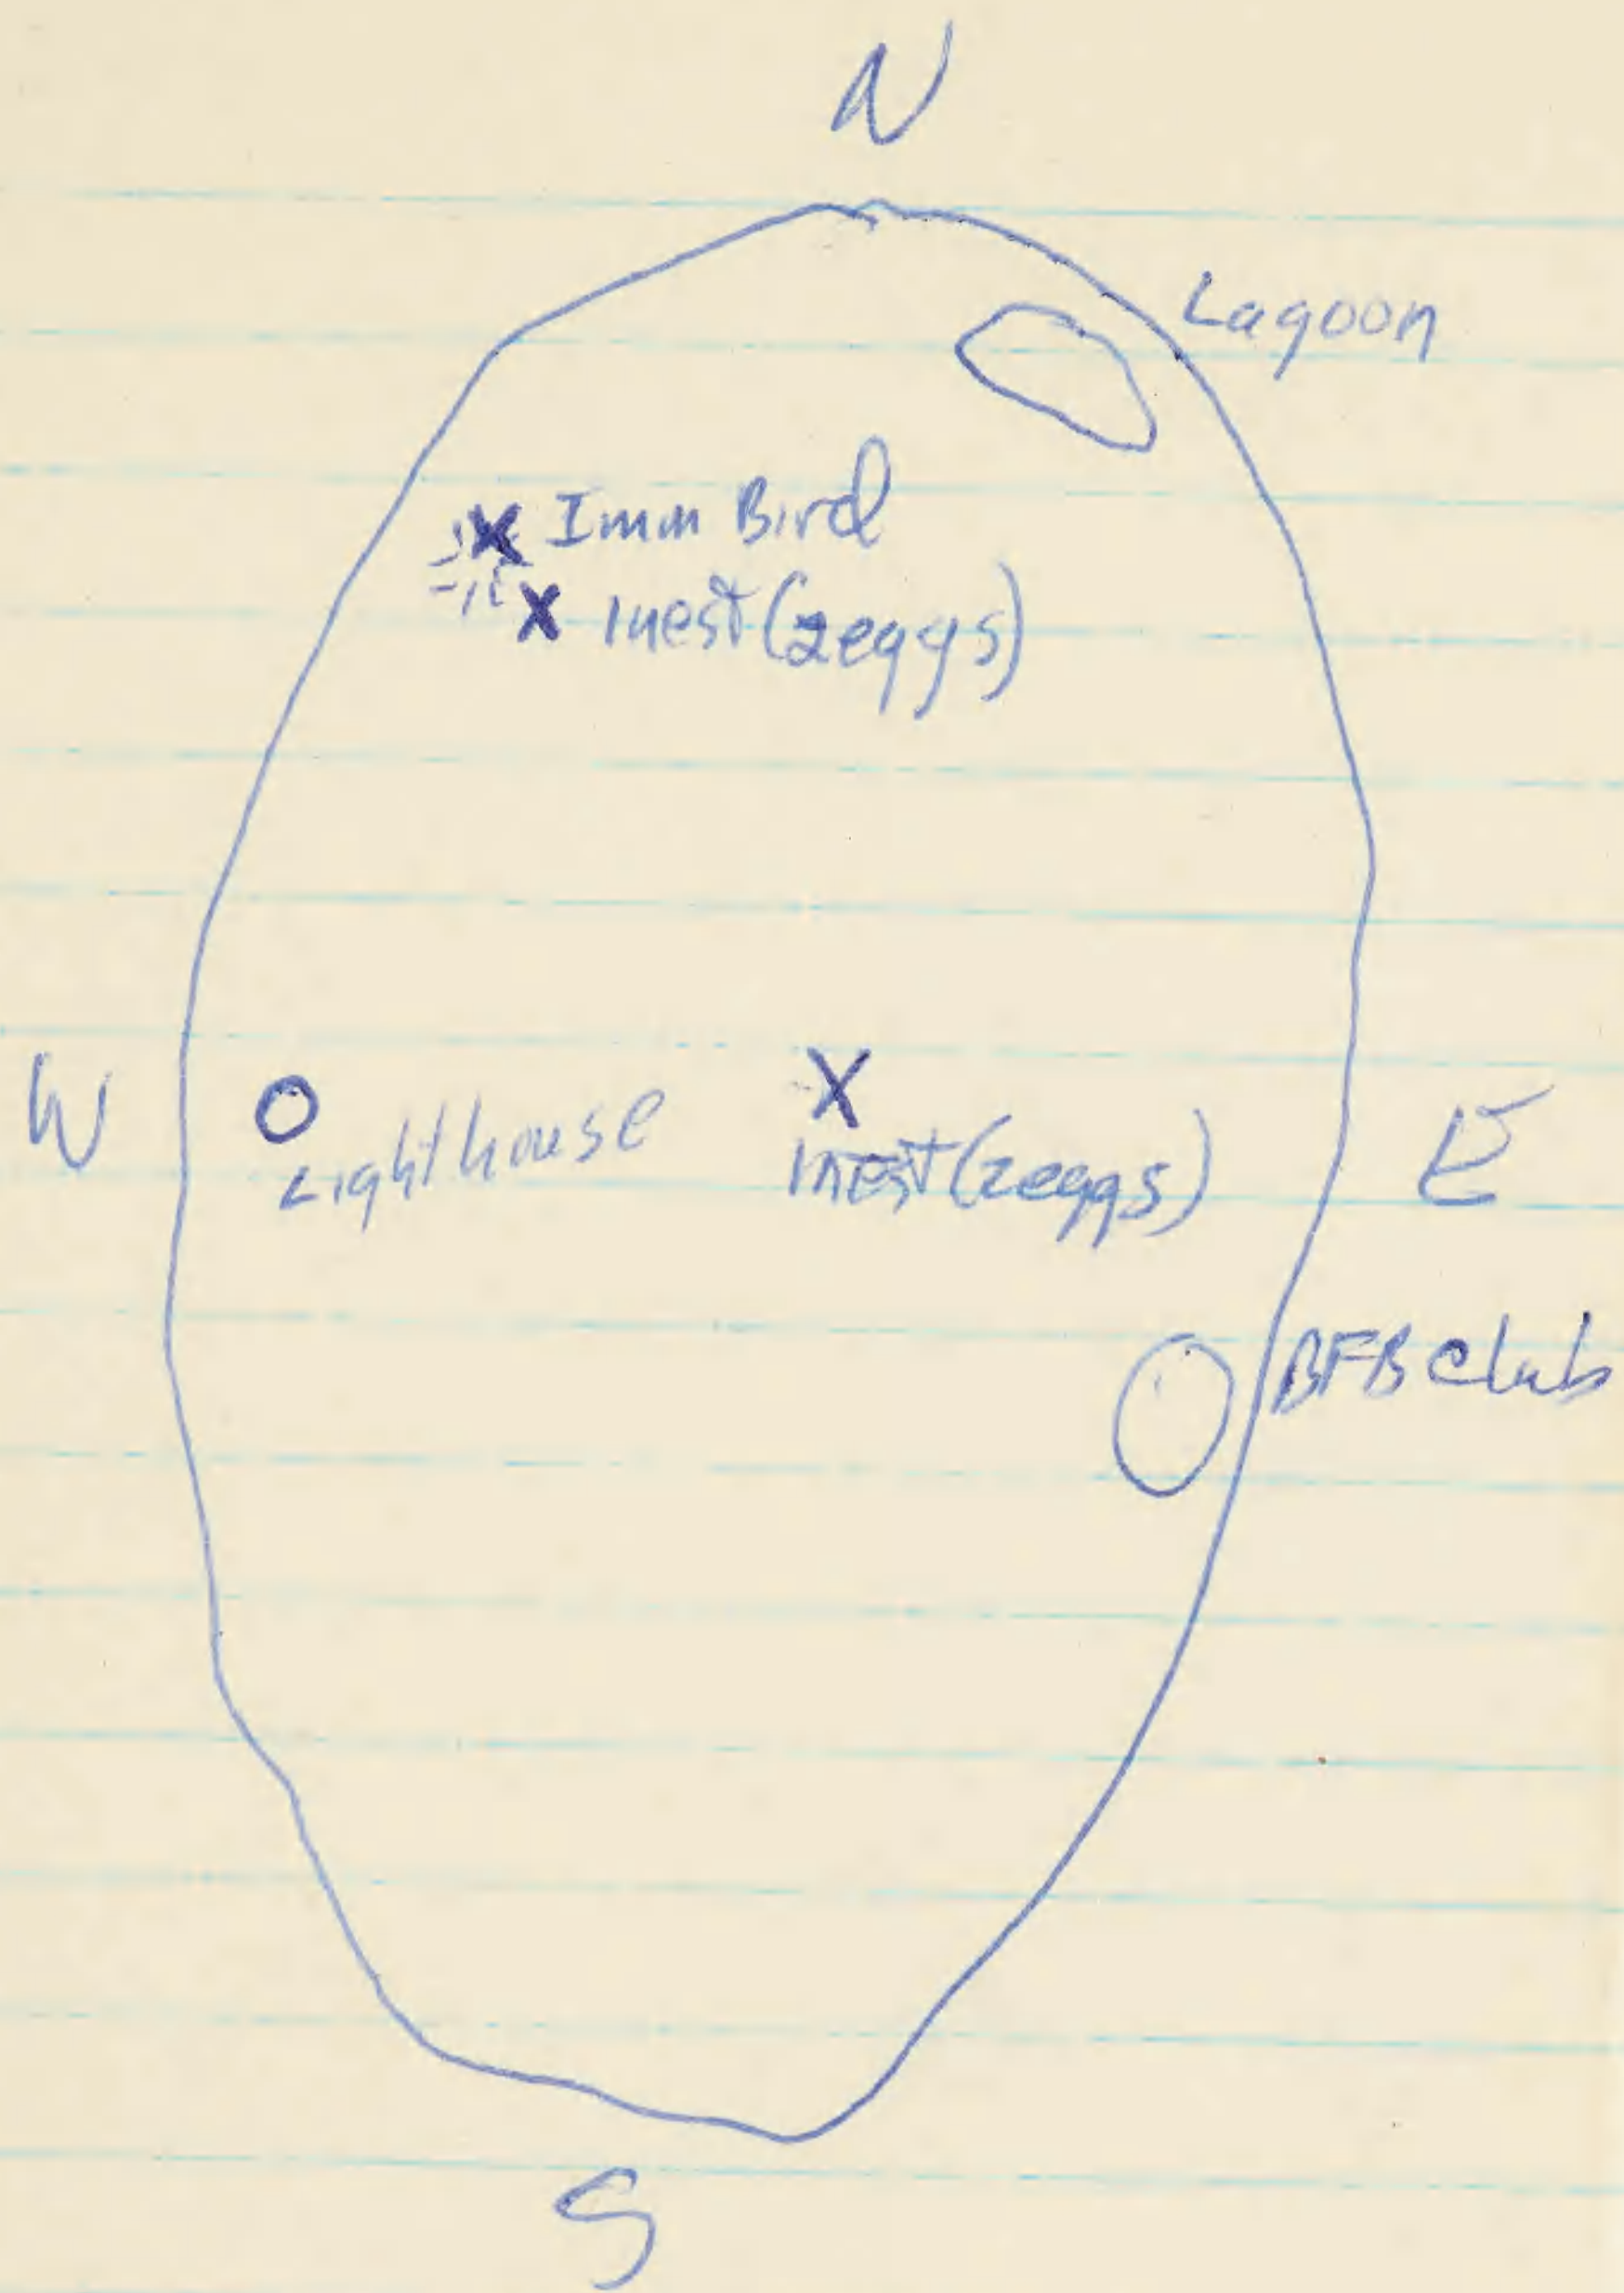 N
Lagoon
X Imm Bird
X 1 nest (2 eggs)
X
W
O
Lighthouse
1 nest (2 eggs)
E
BFB Club
S